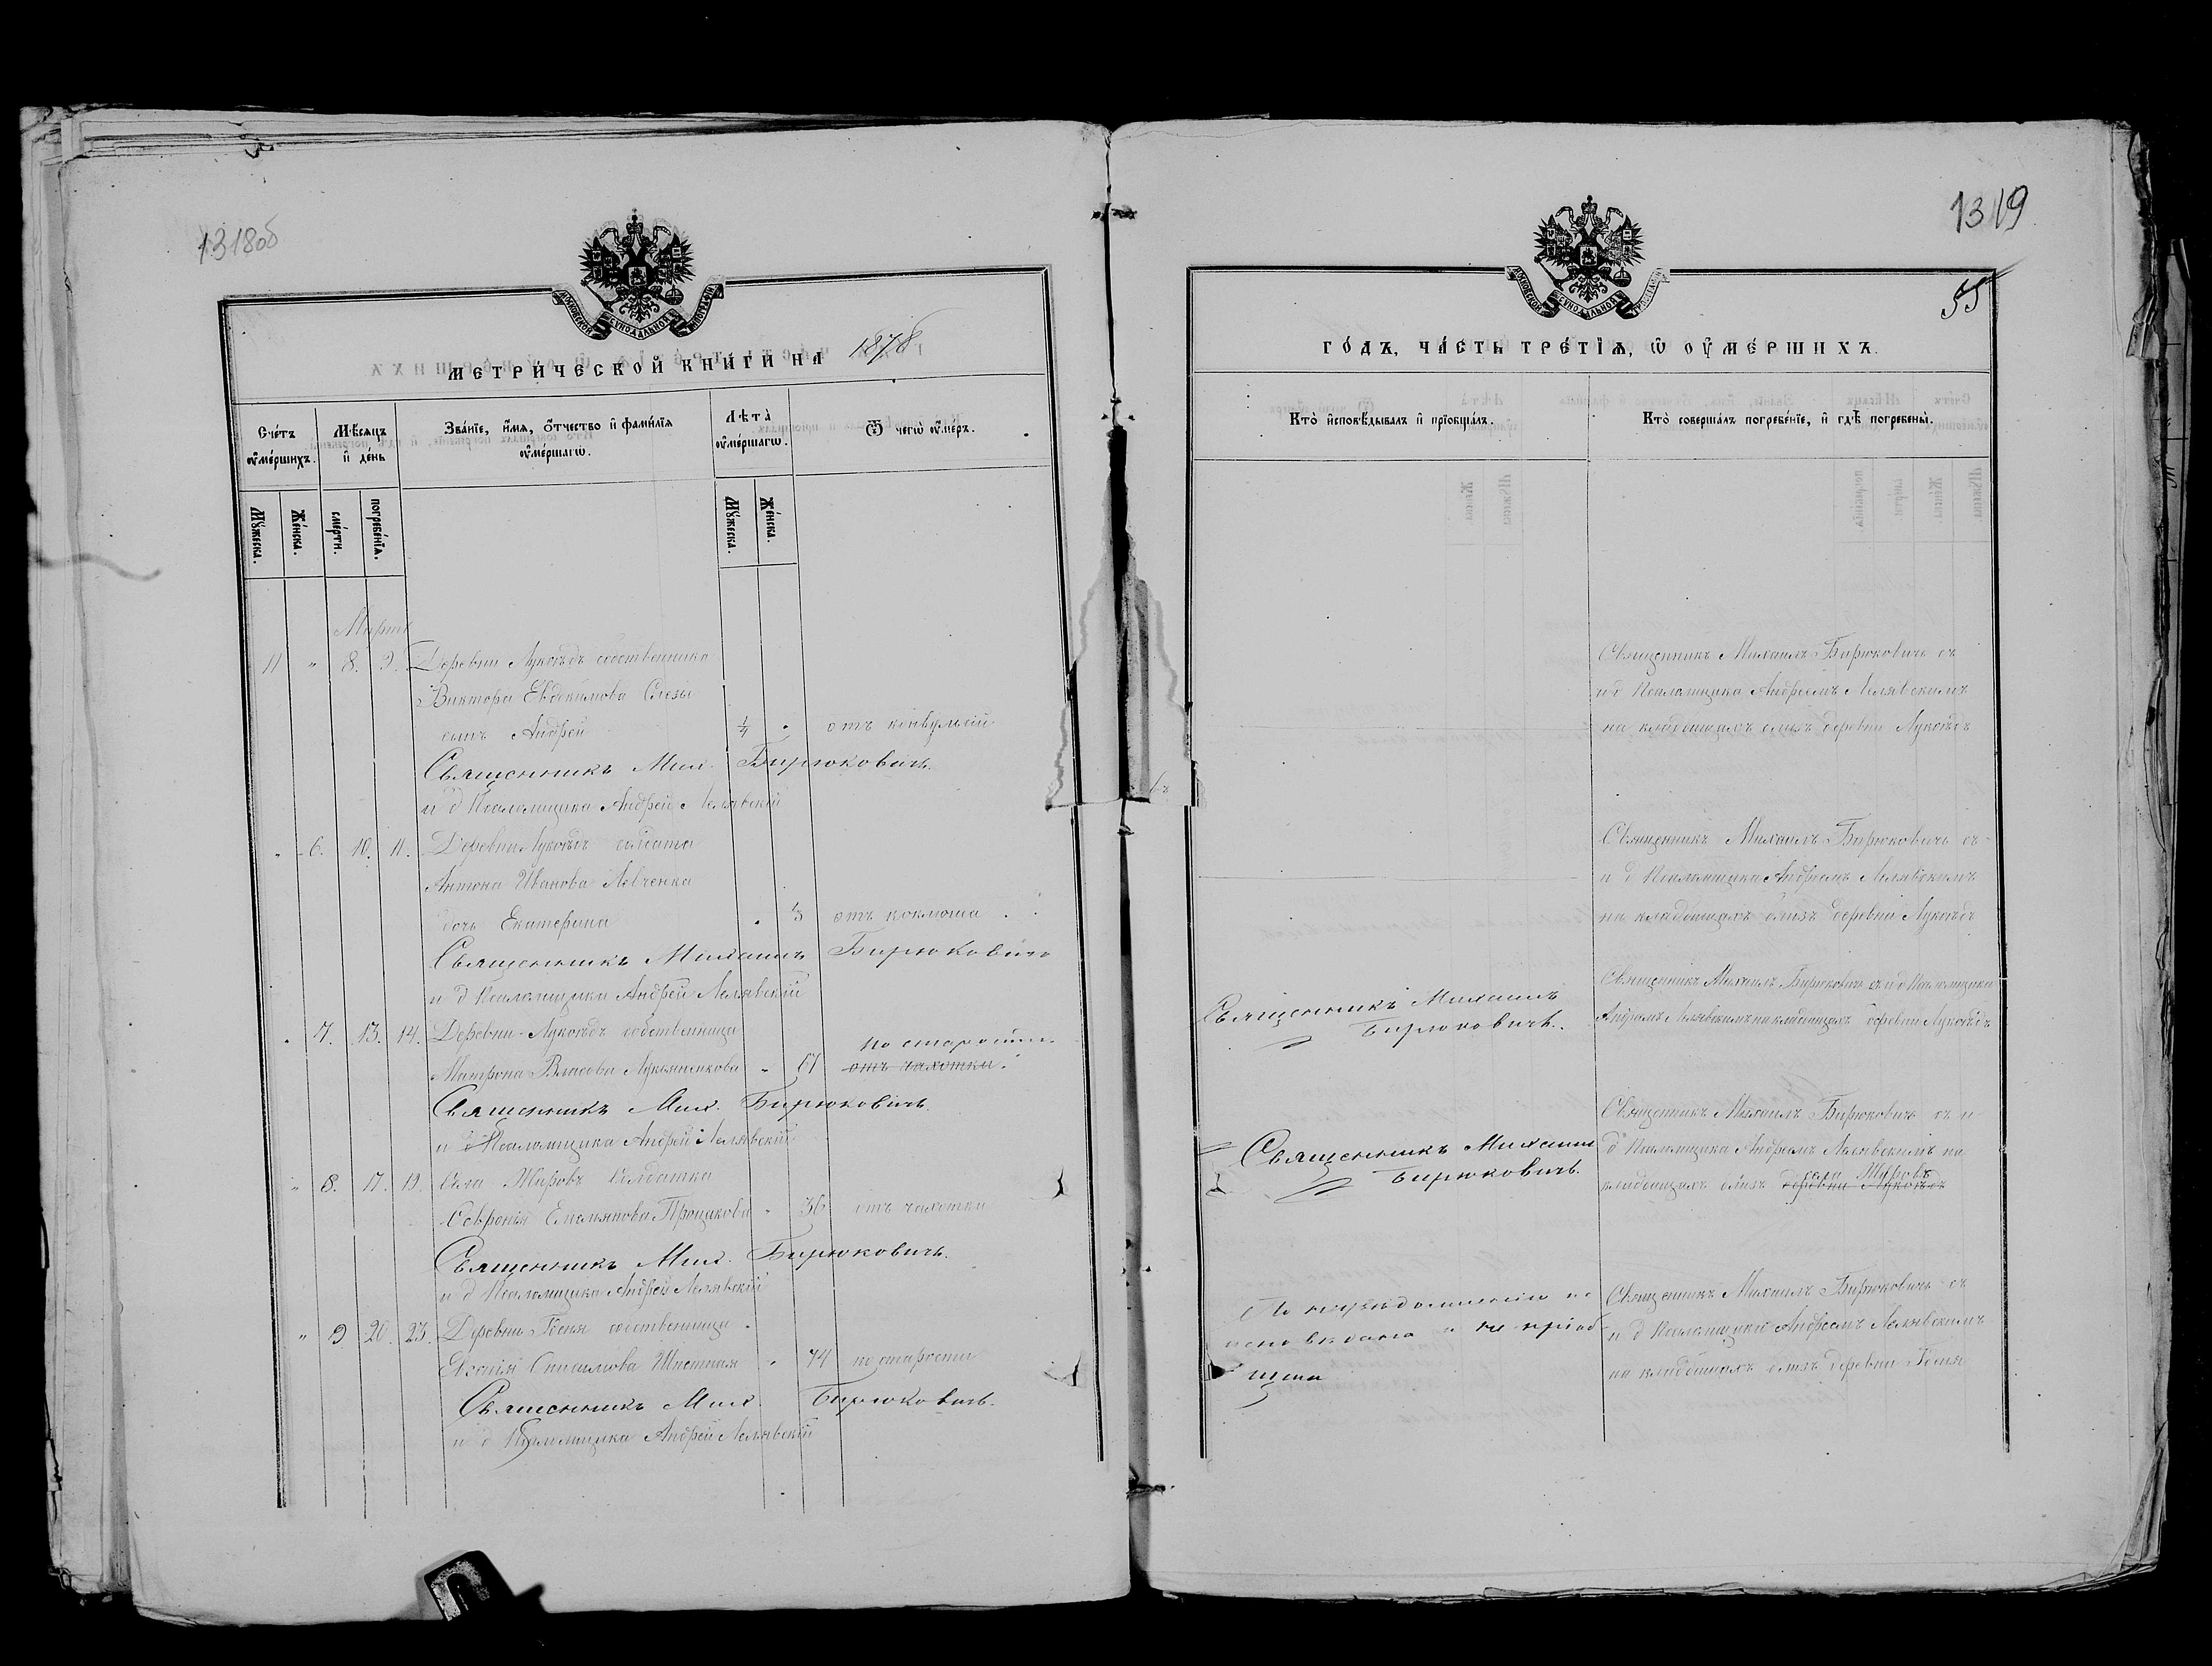 1318об
МОСКОВСКОЙ СѴНОДАЛЬНОЙ ТИПОГРАФІИ
МЕТРИЧЕСКОЙ КНИГИ НА 1878
Счетъ оумершихъ.
Мѣсяцъ и день
Званіе, имя, отчество и фамилія оумершагѡ.
Лѣта оумершагѡ.
Ѿ чегѡ оумеръ.
Мужеска.
Женска.
смерти.
погребенія.
Мужеска.
Женска.
Марта
11 " 8. 9. Деревни собственника
Виктора Евдокимова
сынъ Андрей 1/4 " отъ конвульсій
Священникъ Мих. Бирюковичъ.
и д Псаломщика Андрей Лелявскій
" 6. 10. 11. Деревни солдата
Антона Иванова Левченка
дочь Екатерина " отъ коклюша
Священникъ Михаилъ Бирюковичъ
и д Псаломщика Андрей Лелявскій
" 7. 13. 14. Деревни собственница
по старости
Матрона Власова " отъ чахотки
Священникъ Мих. Бирюковичъ.
и д Псаломщика Андрей Лелявскій
" 8. 17. 19. Села солдатка
Емельянова " 36 отъ чахотки
Священникъ Мих. Бирюковичъ.
и д Псаломщика Андрей Лелявскій
" 9 20. 23. Деревни собственница
" 74 по старости
Священникъ Мих. Бирюковичъ.
и д Псаломщика Андрей Лелявскій
1319
55
МОСКОВСКОЙ СѴНОДАЛЬНОЙ ТИПОГРАФІИ
ГОДЪ, ЧАСТЬ ТРЕТІЯ, Ѡ ОУМЕРШИХЪ.
Кто исповѣдывалъ и пріобщалъ.
Кто совершалъ погребеніе, и гдѣ погребены.
Священникъ Михаилъ Бирюковичъ съ
и д Псаломщика Андреемъ Лелявскимъ
на кладбищахъ близъ деревни
Священникъ Михаилъ Бирюковичъ съ
и д Псаломщика Андреемъ Лелявскимъ
на кладбищахъ близъ деревни
Священникъ Михаилъ
Бирюковичъ.
Священникъ Михаилъ Бирюковичъ съ и д Псаломщика
Андреемъ Лелявскимъ на кладбищахъ деревни
Священникъ Михаилъ
Бирюковичъ.
Священникъ Михаилъ Бирюковичъ съ и
д Псаломщика Андреемъ Лелявскимъ на
села
кладбищахъ близъ деревни
По неувѣдомленію не
исповѣдана и не пріоб
щена
Священникъ Михаилъ Бирюковичъ съ
и д Псаломщика Андреемъ Лелявскимъ
на кладбищахъ близъ деревни